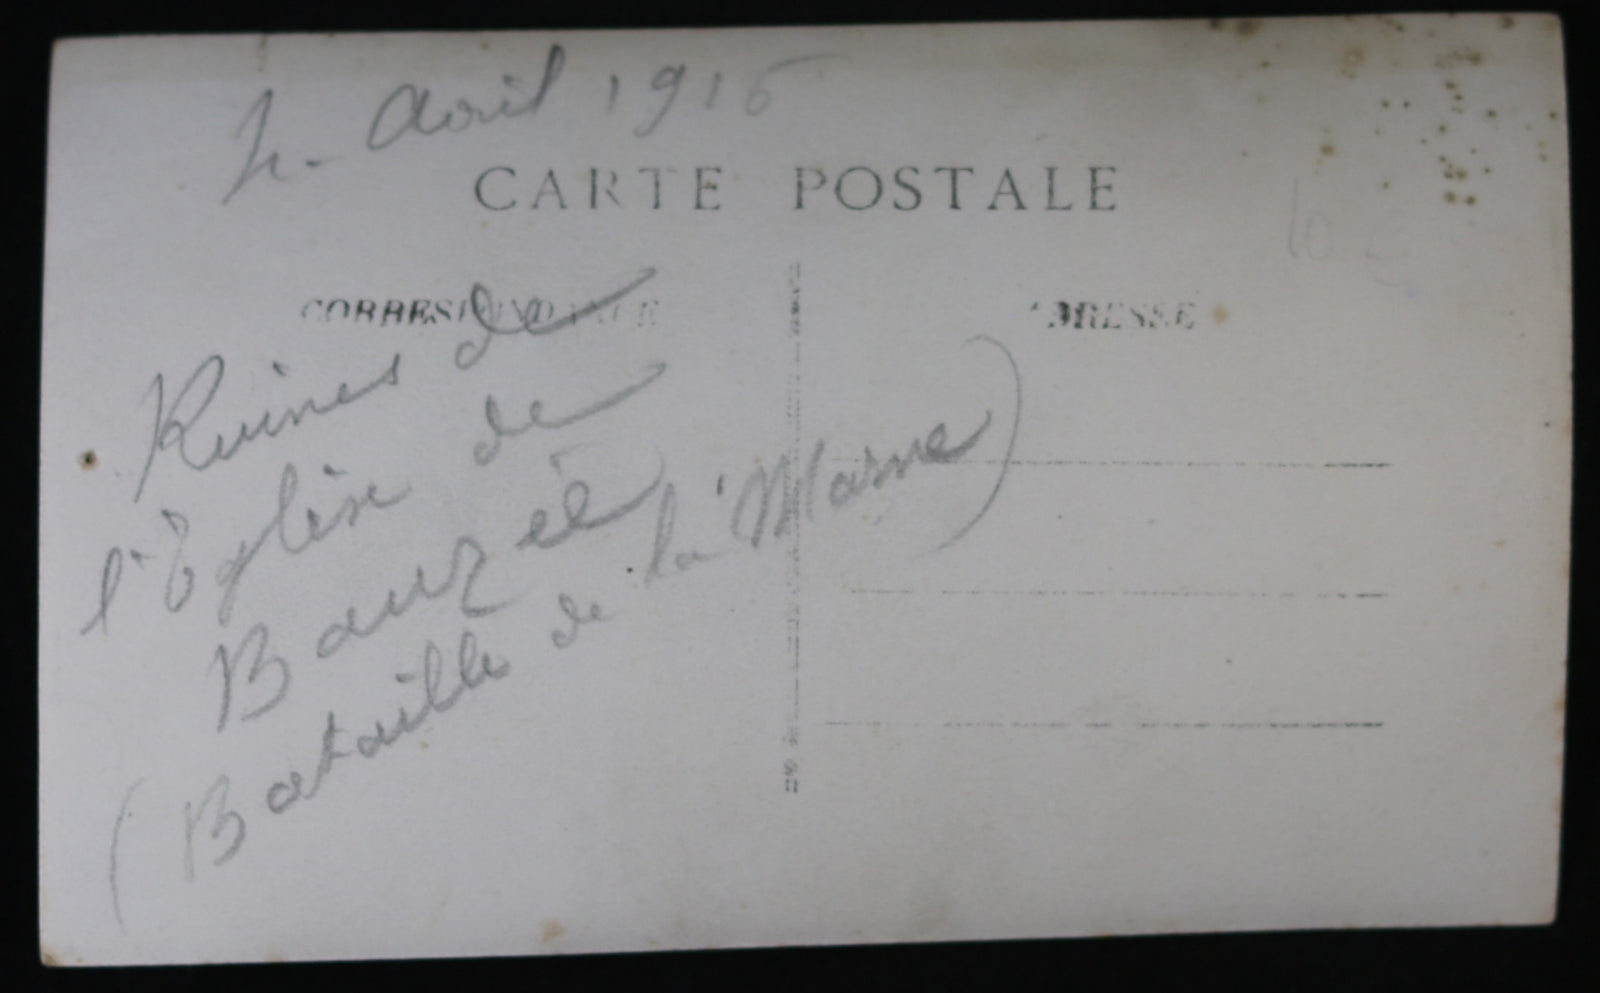 Avril 1916
CARTE POSTALE
CORRESPONDANCE
ADRESSE
Ruines de
l'Eglise de
Bauzée
(Bataille de la Marne)